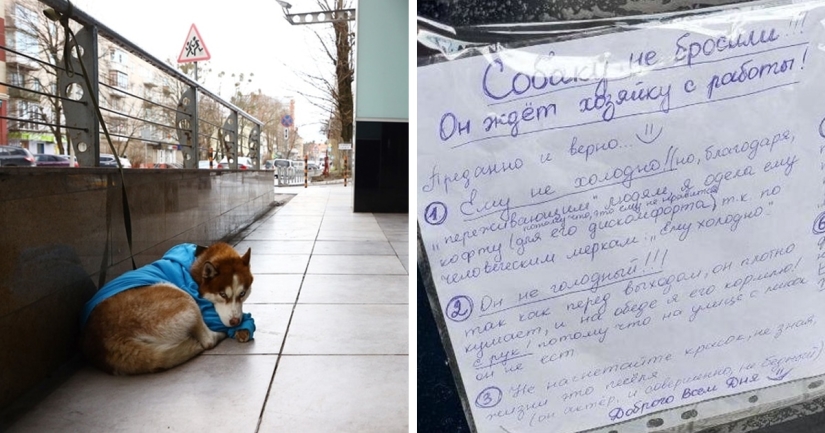 Собаку не бросили!!!
Он ждёт хозяйку с работы!
Преданно и верно...
1 Ему не холодно!! но, благодаря,
"переживающим" людям, я одела ему
потому что, это ему не нравится
кофту (для его дискомфорта) т.к. по
человеческим меркам: "ему холодно".
2 Он не голодный!!!
так как перед выходом, он плотно
кушает, и на обеде я его кормлю!
с рук! потому что на улице с миски
он не ест
3 Не насчетайте красок, не зная,
жизни это песеля
(он актёр, и совершенно, не бедный)
Доброго Всем Дня